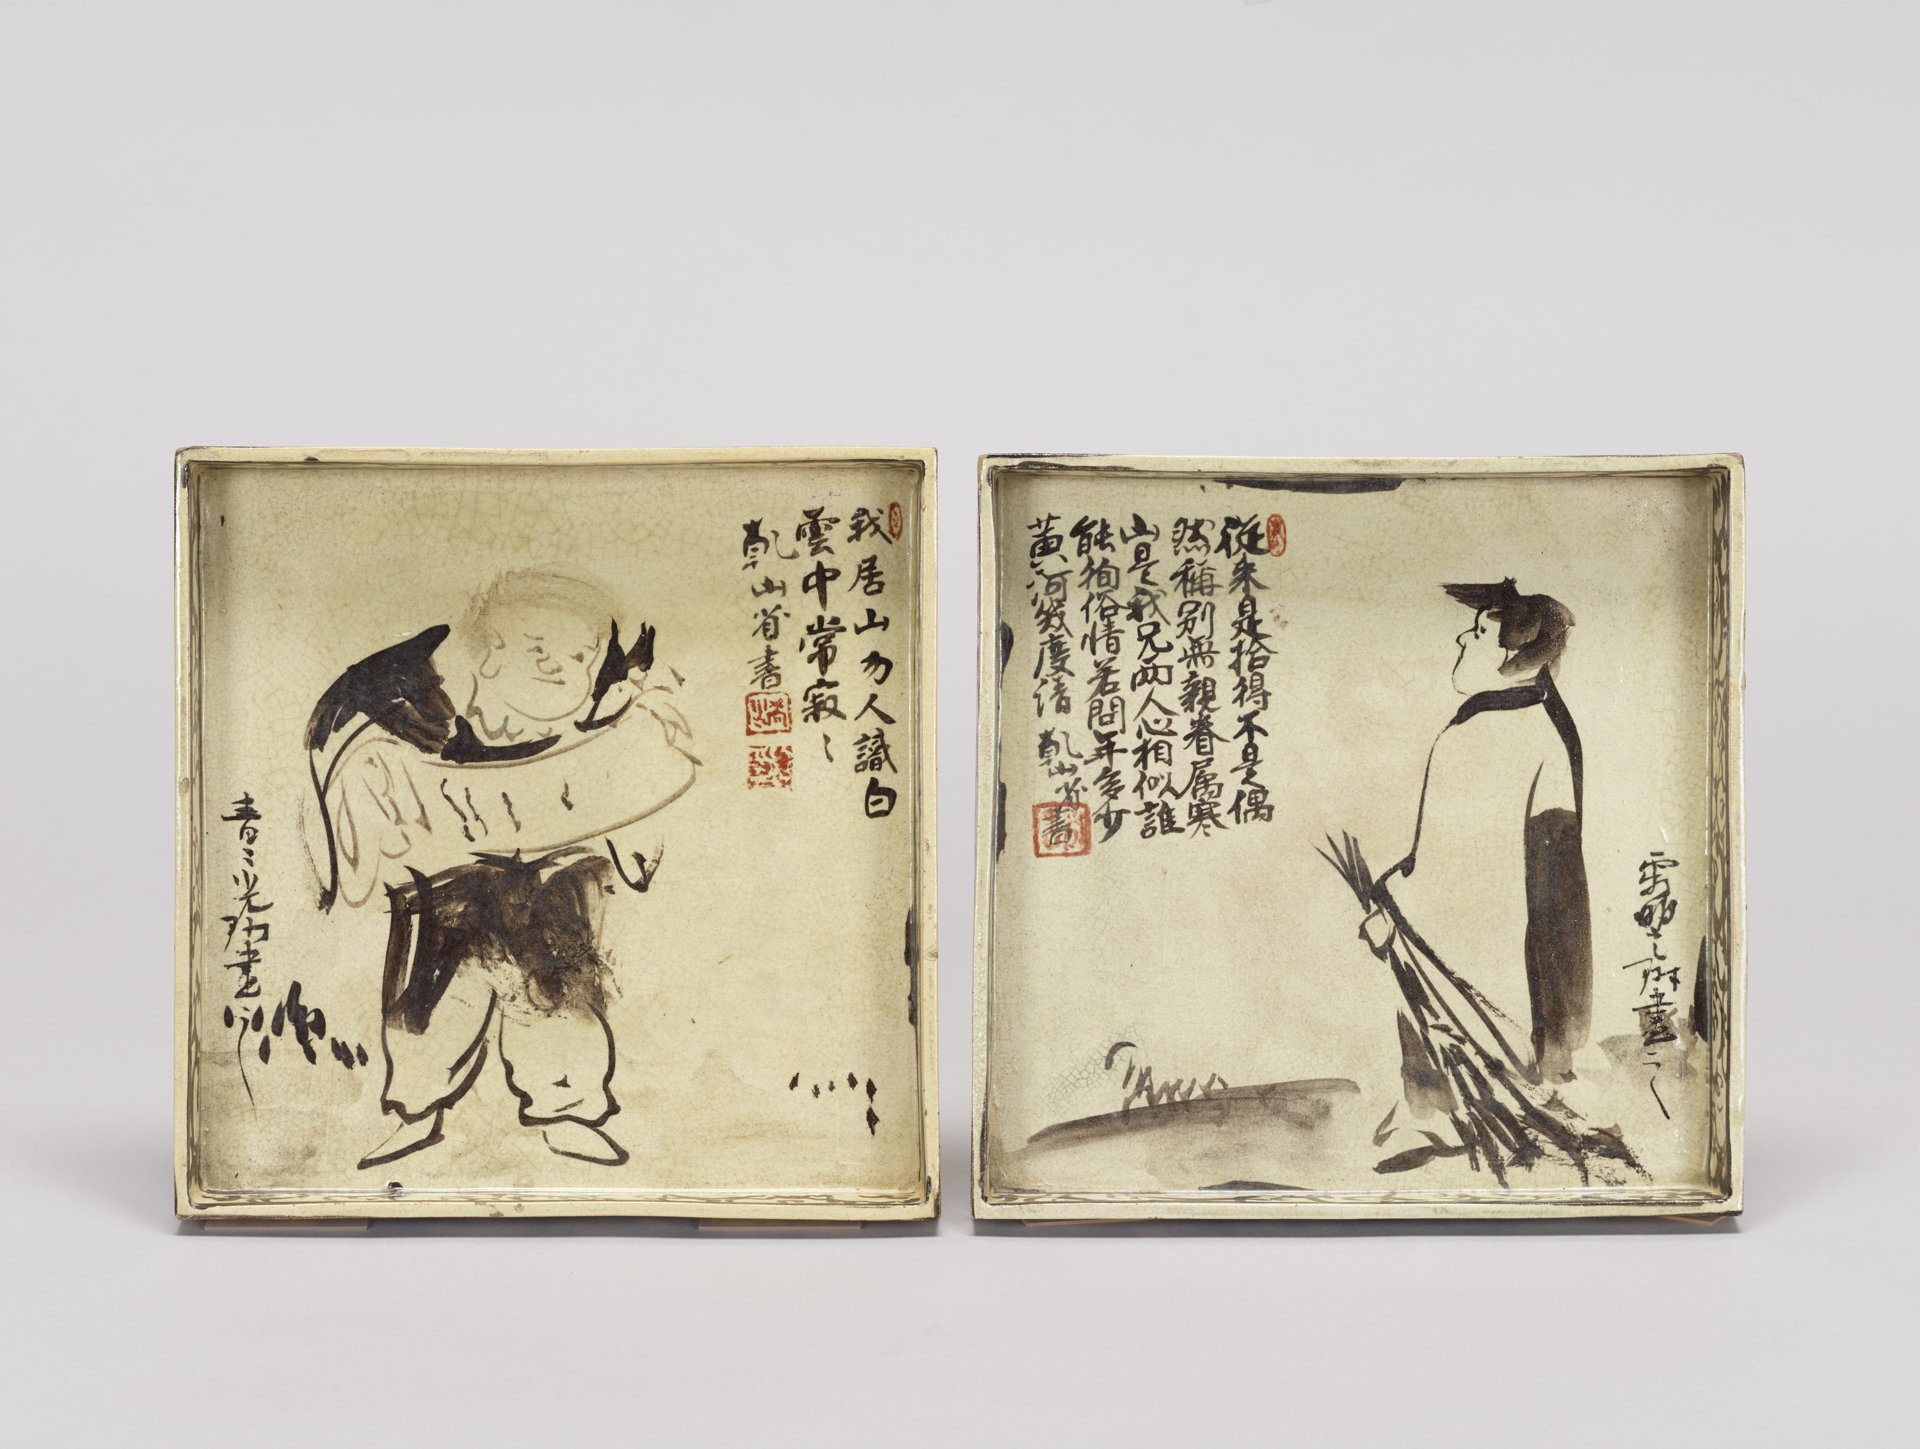 我居山勿人識白
雲中常寂〻
乾山省書
青〻光琳畫
從来是拾得不是偶
然稱別無親眷属寒
山是我兄兩人心相似誰
能徇俗情若問年多少
黄河幾度清 乾山省書
寂明光琳畫之